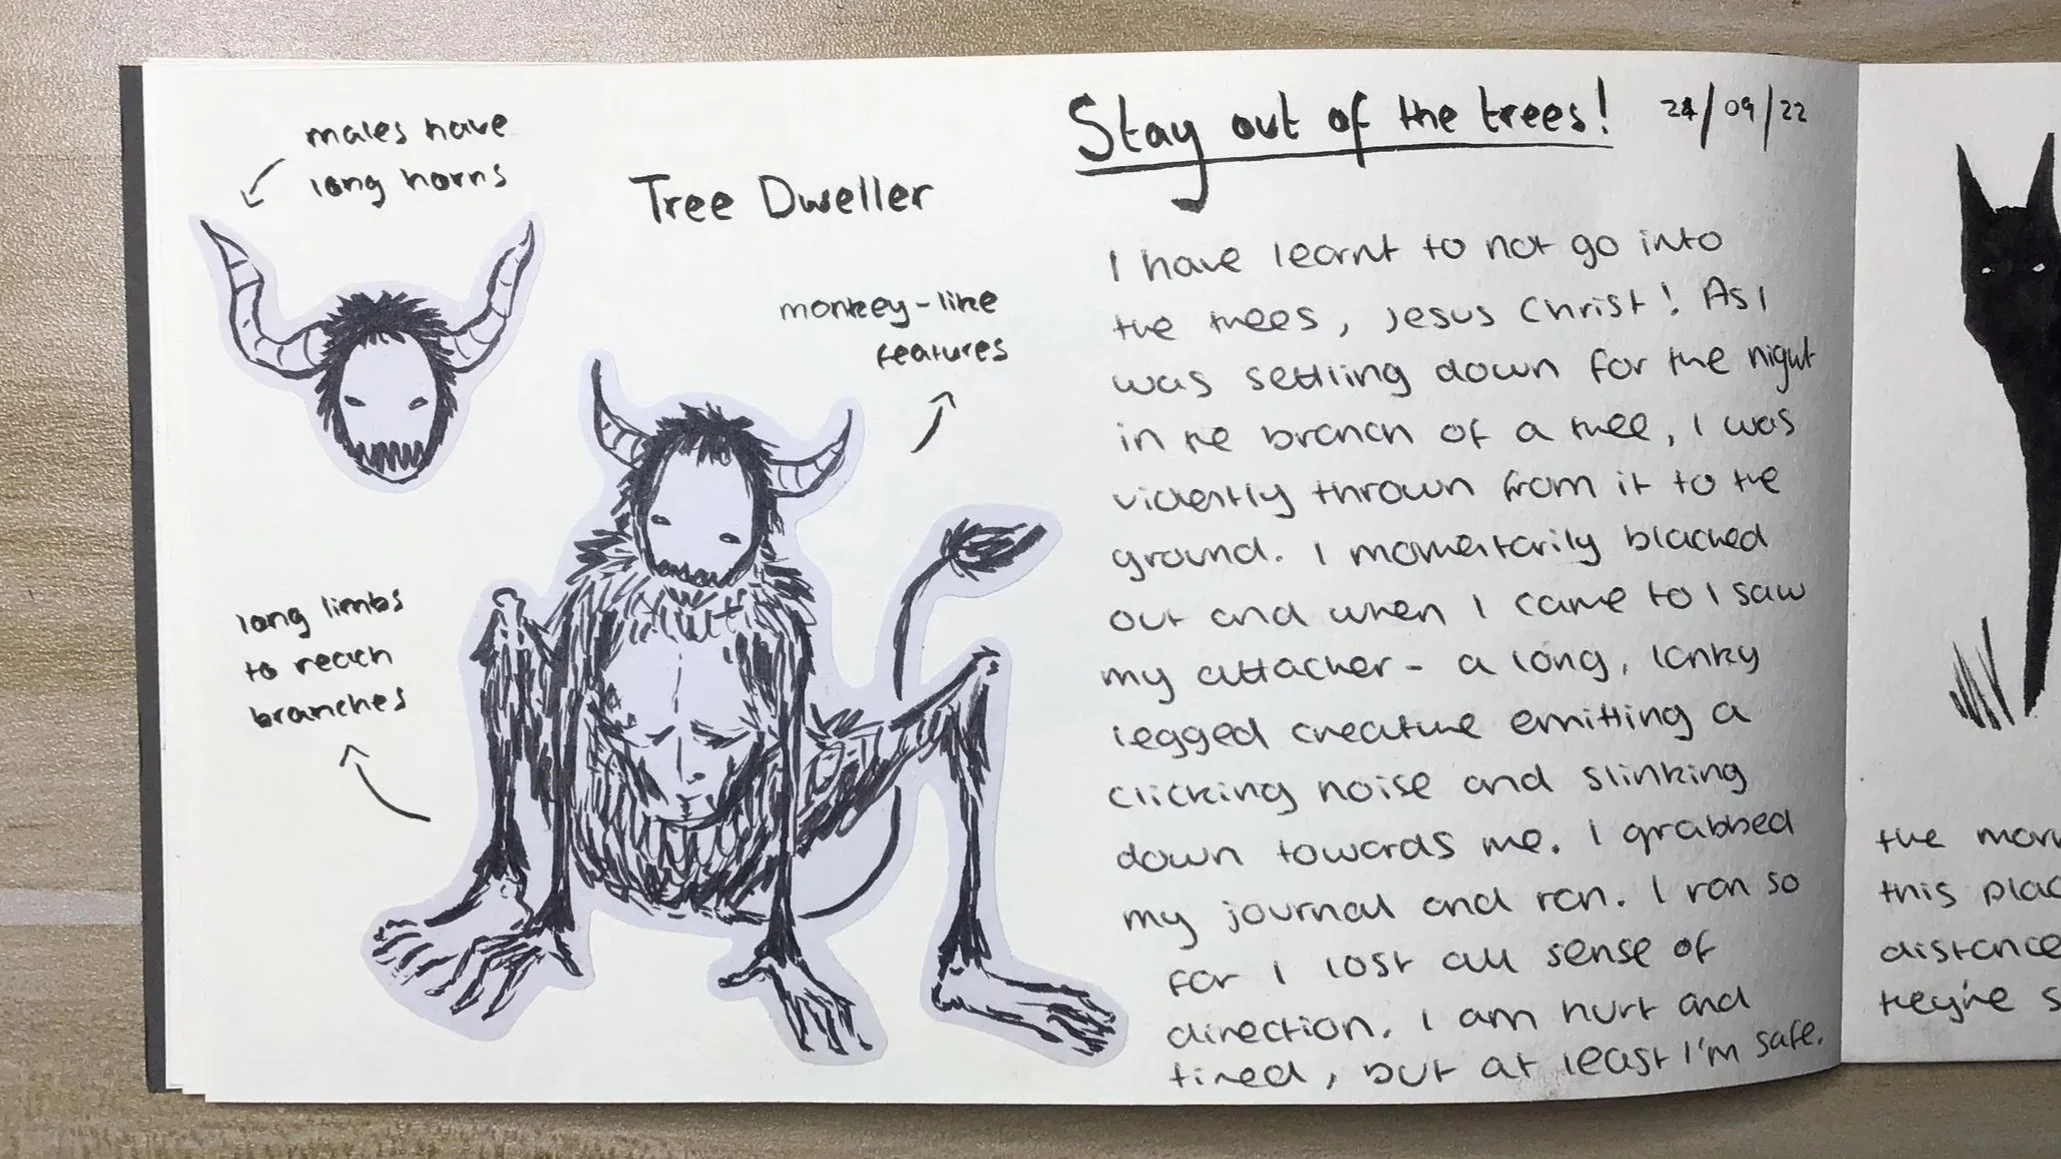 males have
long horns
Tree Dweller
monkey-like
features
long limbs
to reach
branches
Stay out of the trees! 24/09/22
I have learnt to not go into
the trees, Jesus Christ! As I
was settling down for the night
in the branch of a tree, I was
violently thrown from it to the
ground. I momentarily blacked
out and when I came to I saw
my attacker - a long, lanky
legged creature emitting a
clicking noise and slinking
down towards me. I grabbed
my journal and ran. I ran so
far I lost all sense of
direction. I am hurt and
tired, but at least I'm safe.
the
this
distance
they're